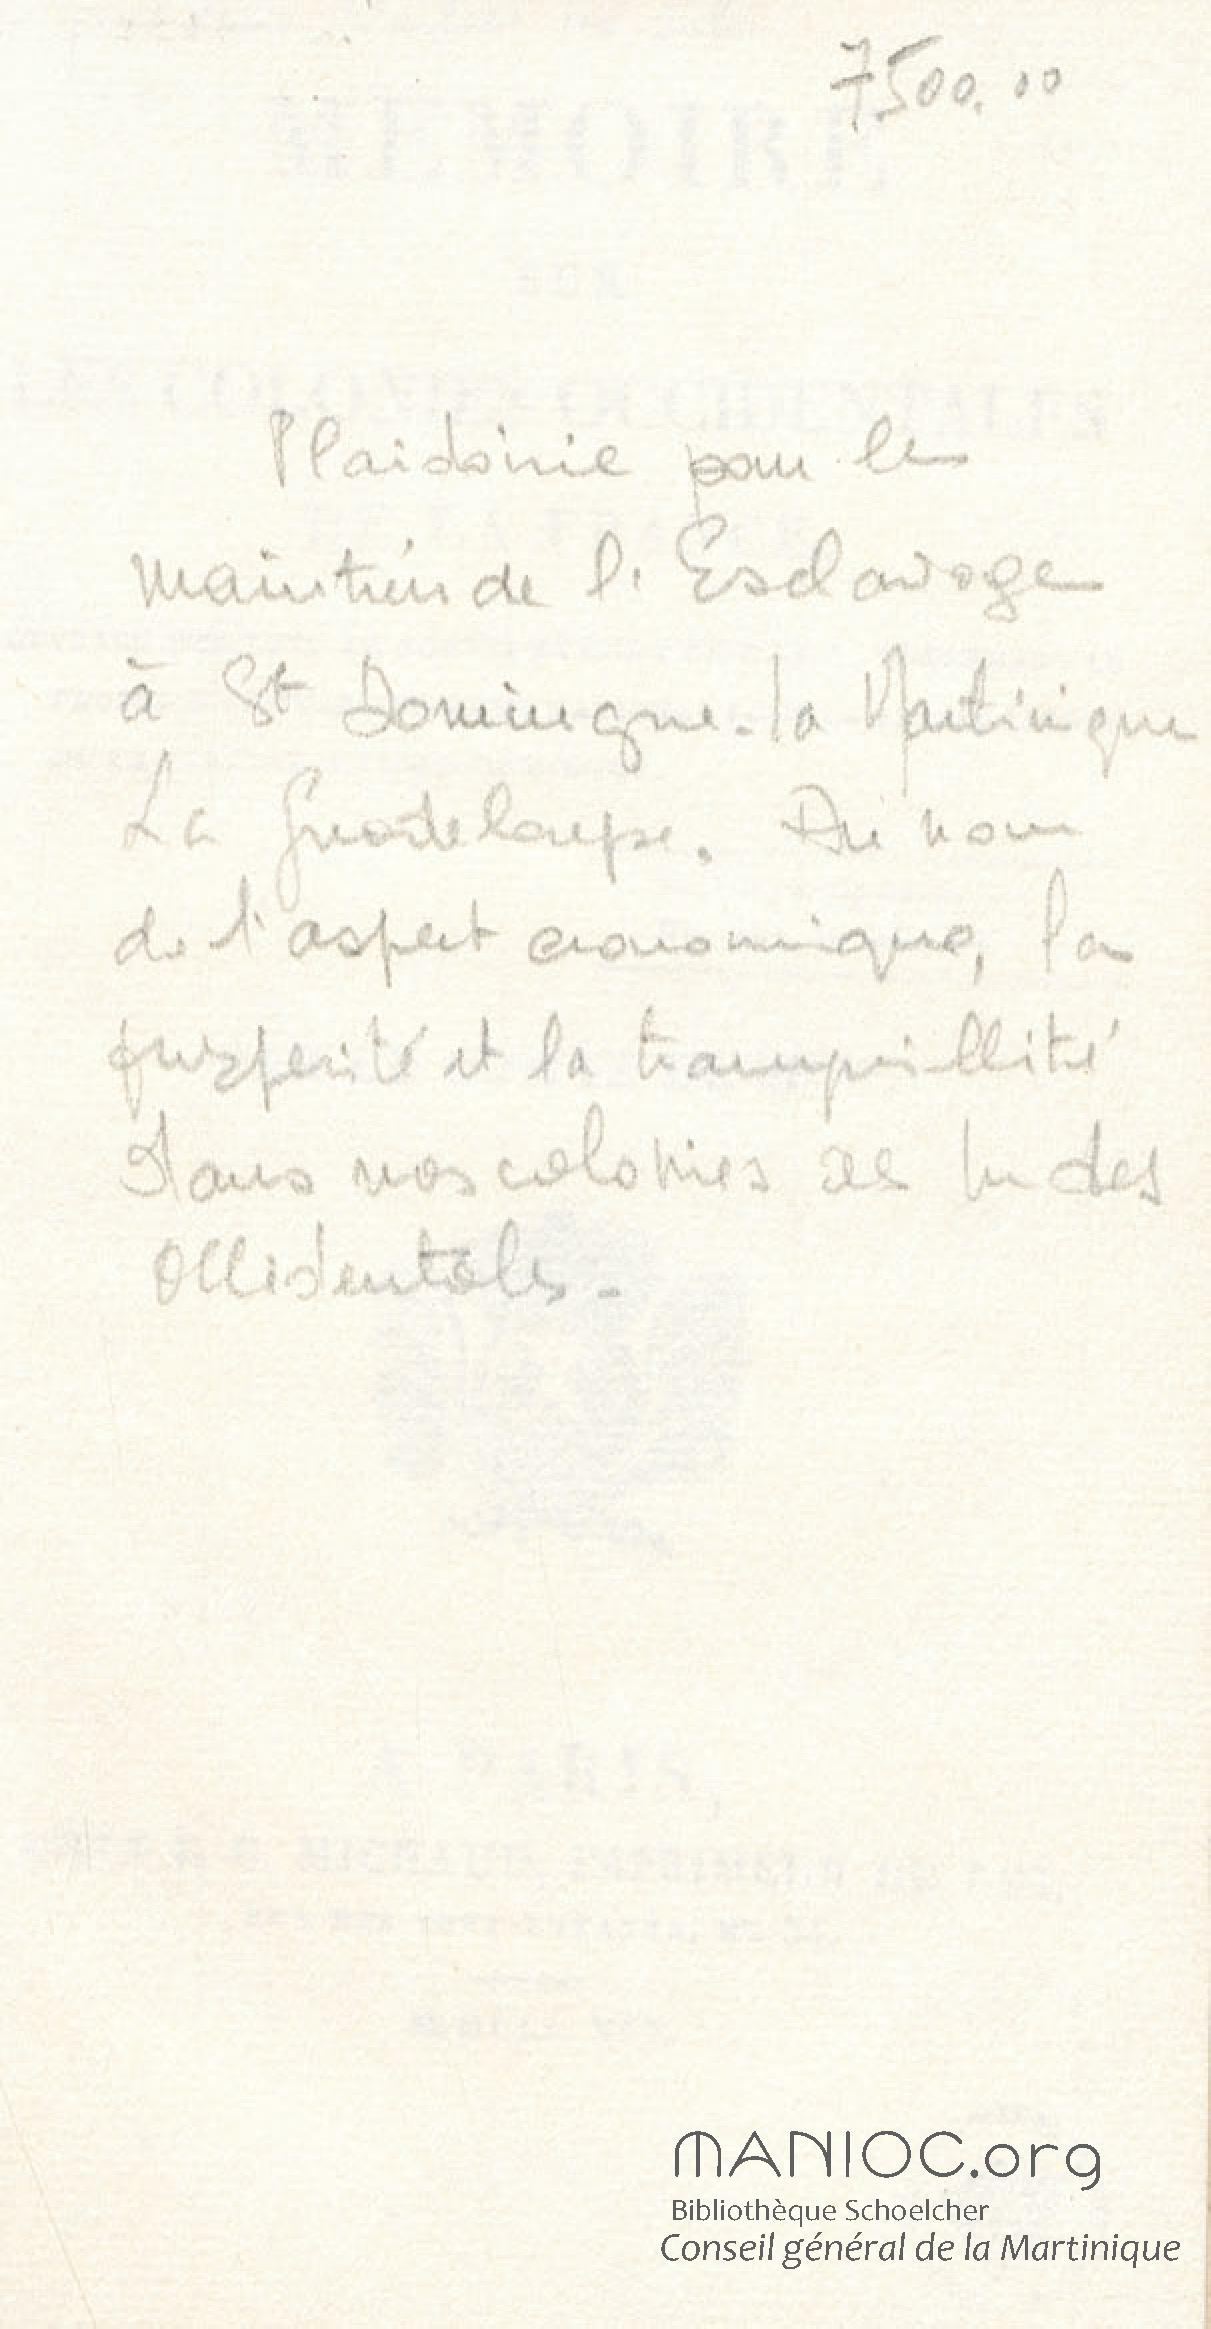 7500.00
MEMOIRE
SUR
Plaidoirie pour le
maintien de l'Esclavage
à St Domingue. la Martinique
La Guadeloupe. Au nom
de l'aspect economique, la
prosperité et la tranquillité
dans nos colonies des Indes
Occidentales.
A PARIS,
MANIOC.org
Bibliothèque Schoelcher
Conseil général de la Martinique